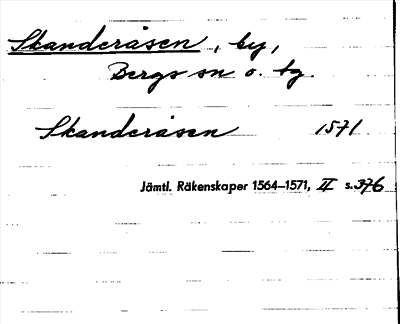 Skanderåsen, by,
Bergs sn o. tg.
Skanderåsen 1571
Jämtl. Räkenskaper 1564–1571, II s. 376